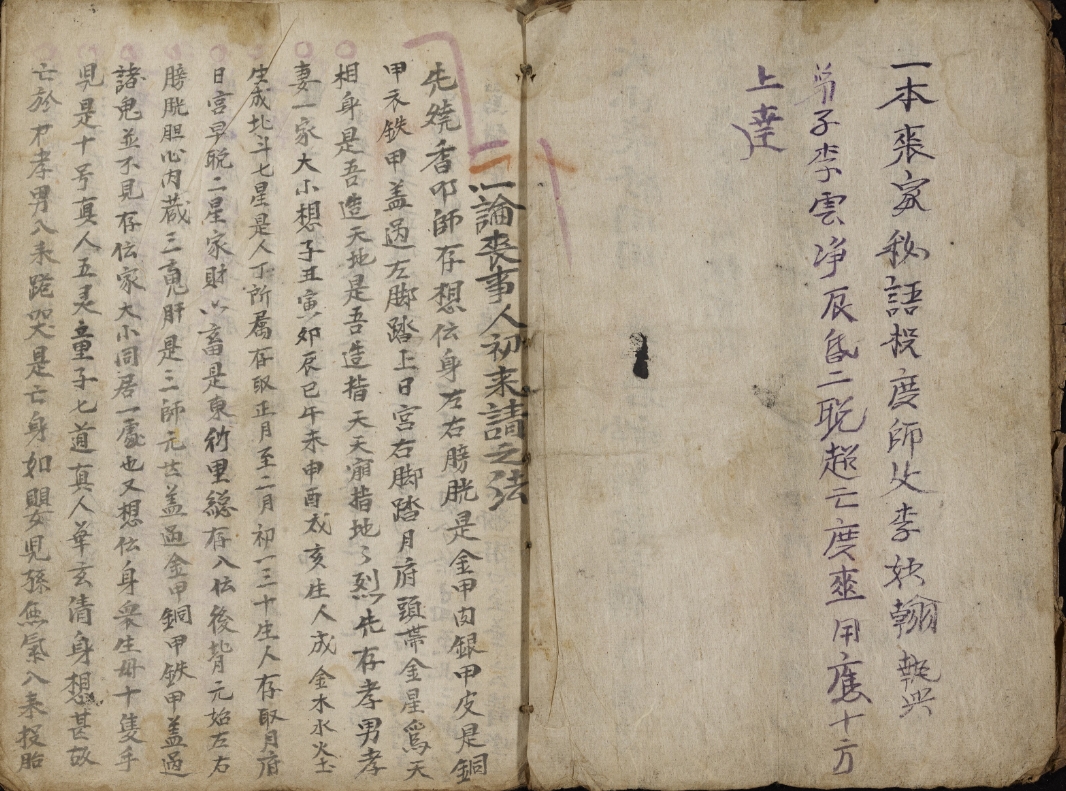 一本喪家秘語投度師父李妖翰執兴
弟子李雲净辰昏二晩超亡度𡊨用應十方
上達
一論喪事人初来請之法
先燒香叩師存想伝身左右膀胱是金甲肉銀甲皮是銅
甲衣鉄甲盖過左脚踏上日宮右脚踏月府頭帶金星爲天
相身是吾造天地是吾造指天天崩指地々烈先存孝男孝
妻一家大小想子丑寅卯辰巳午未申酉戍亥生人成金木水火土
生成北斗七星是人丁所属存取正月至二月初一三十生人存取月府
日宮早晩二星家財六畜是東竹里総存入伝後背元始左右
膀胱胆心内蔵三鬼肝是三師元世盖過金甲銅甲鉄甲盖過
諸鬼並不見存伝家大小同居一處也又想伝身衆生毋十隻手
児是十号真人五灵童子七道真人華玄清身想甚故
亡於不孝男入来跪哭是亡身如嬰児孫無氣入来投胎